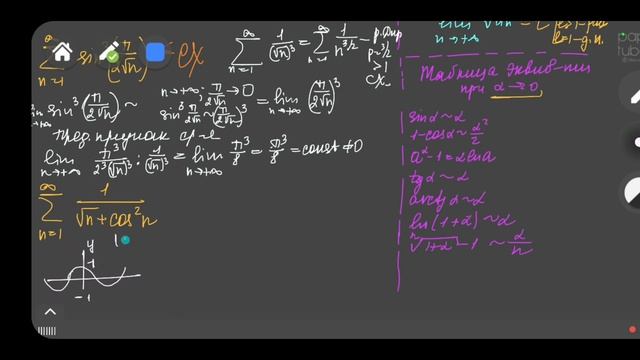 ∞
∑ sin³(π/2√n) сх
n=1
∞ ∞
∑ 1/(√n)³ = ∑ 1/n^(3/2) – р. Дир
n=1 n=1
p = 3/2 > 1
сх.
lim sin³(π/2√n) ~
n→+∞
n→+∞; π/2√n → 0
sin³ π/2√n ~ (π/2√n)³
= lim (π/2√n)³
n→+∞
Пред. признак ср-я
lim π³/2³(√n)³ : 1/(√n)³ = lim π³/8 = π³/8 = const ≠ 0
n→+∞ n→+∞
∞
∑ 1/(√n + cos²n)
n=1
y
1
-1
n→+∞
Таблица эквив-тн
при α→0
sinα ~ α
1-cosα ~ α²/2
a^α - 1 = α ln a
tgα ~ α
arctgα ~ α
ln(1+α) ~ α
ⁿ√(1+α) - 1 ~ α/n